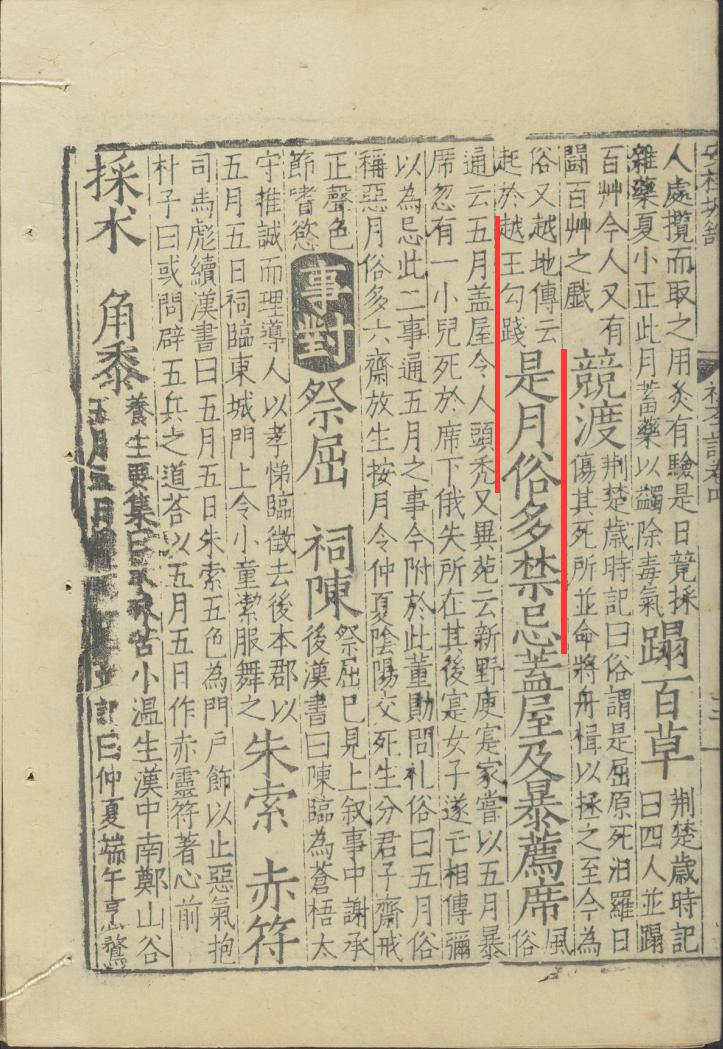 人處攬而取之用灸有驗是日競採
雜藥夏小正此月蓄藥以蠲除毒氣
蹋百草
荆楚歲時記
曰四人並蹋
百艸今人又有
鬬百艸之戲
競渡
荆楚歲時記曰俗謂是屈原死汨羅日
傷其死所並命將舟楫以拯之至今為
俗又越地傳云
起於越王勾踐
是月俗多禁忌蓋屋及暴薦席
風
俗
通云五月盖屋令人頭秃又異苑云新野庾寔家嘗以五月暴
席忽有一小兒死於席下俄失所在其後寔女子遂亡相傳彌
以為忌此二事通五月之事今附於此董勛問礼俗曰五月俗
稱惡月俗多六齋放生按月令仲夏陰陽交死生分君子齋戒
正聲色
節嗜慾
事對
祭屈 祠陳
祭屈已見上叙事中謝承
後漢書曰陳臨為蒼梧太
守推誠而理導人以孝悌臨徵去後本郡以
五月五日祠臨東城門上令小童潔服舞之
朱索 赤符
司馬彪續漢書曰五月五日朱索五色為門戶飾以止惡氣抱
朴子曰或問辟五兵之道荅以五月五日作赤靈符著心前
採朮 角黍
養生要集曰朮味苦小温生漢中南鄭山谷
五月五日 記曰仲夏端午烹鶩